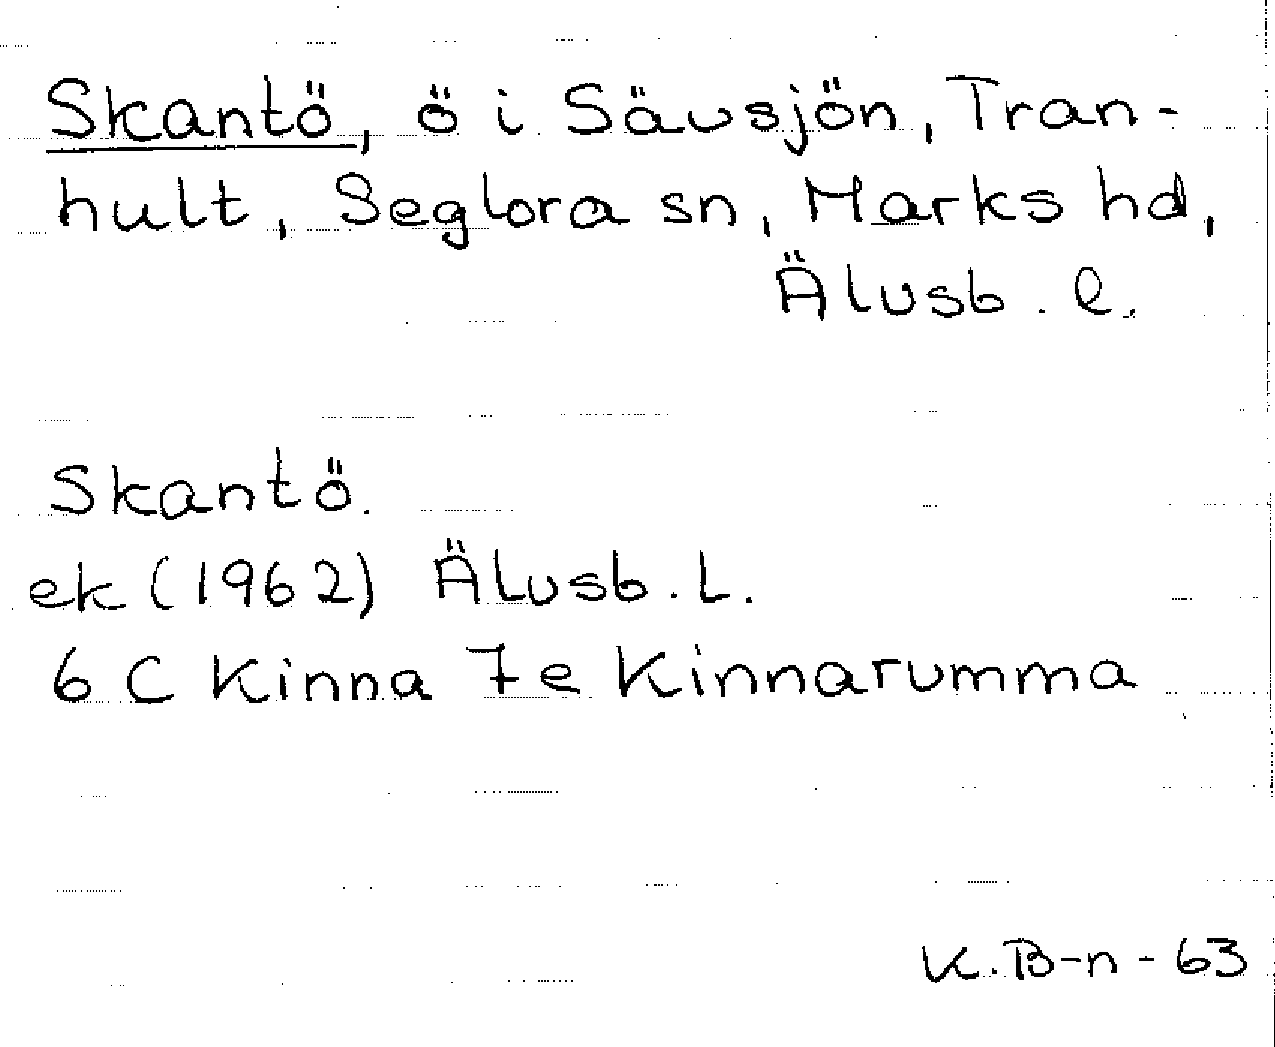 Skantö, ö i Sävsjön, Tran-
hult, Seglora sn, Marks hd,
Älvsb. l.
Skantö.
ek (1962) Älvsb. L.
6 C Kinna 7e Kinnarumma
K.B-n-63